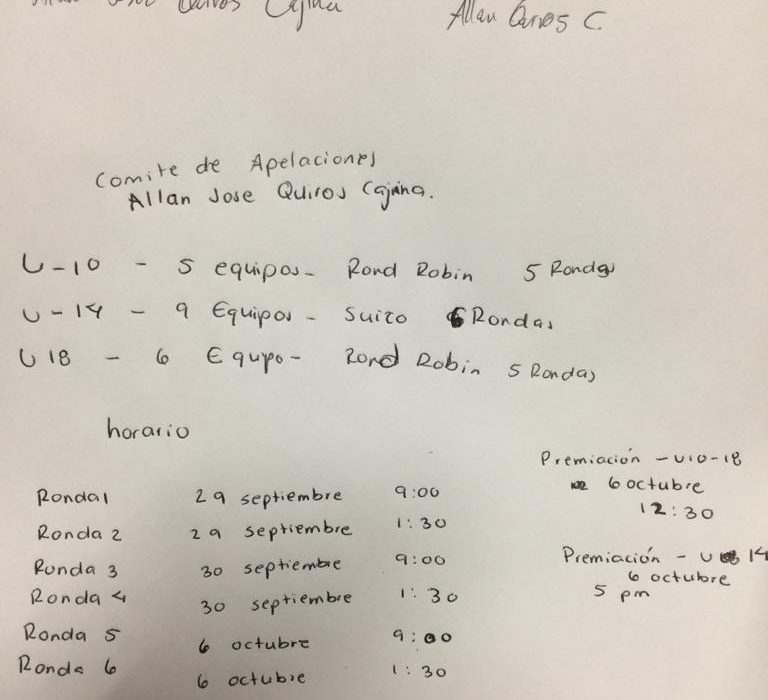 Jose Quiros Cajina
Allan Quiros C
Comite de Apelaciones
Allan Jose Quiros Cajina.
U-10 - 5 equipos- Rond Robin 5 Rondas
U-14 - 9 Equipos - Suizo 6 Rondas
U 18 - 6 Equipo - Rond Robin 5 Rondas
horario
Ronda1 29 septiembre 9:00
Ronda 2 29 septiembre 1:30
Ronda 3 30 septiembre 9:00
Ronda 4 30 septiembre 1:30
Ronda 5 6 octubre 9:00
Ronda 6 6 octubre 1:30
Premiación - U10-18
6 octubre
12:30
Premiación - U 14
6 octubre
5 pm